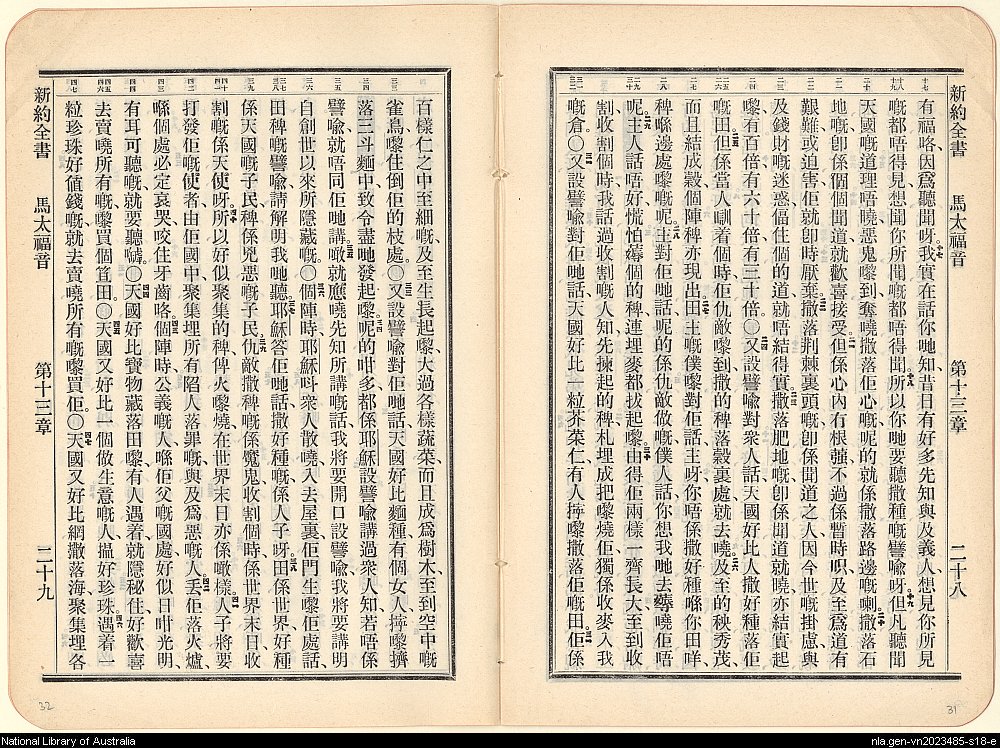 新約全書 馬太福音 第十三章 二十八
有福咯因爲聽聞呀我實在話你哋知昔日有好多先知與及義人想見你所見
嘅都唔得見想聞你所聞嘅都唔得聞所以你哋要聽撒種嘅譬喩呀但凡聽聞
天國嘅道理唔曉惡鬼嚟到奪嘵撒落佢心嘅呢的就係撒落路邊嘅喇撒落石
地嘅卽係個個聞道就歡喜接受但係心內有根薳不過係暫時啫及至爲道有
艱難或迫害佢就卽時厭棄撒落荆棘裏頭嘅卽係聞道之人因今世嘅掛慮與
及錢財嘅迷惑偪住個的道就唔結得實撒落肥地嘅卽係聞道就曉亦結實起
嚟有百倍有六十倍有三十倍〇又設譬喩對衆人話天國好比人撒好種落佢
嘅田但係當人瞓着個時佢仇敵嚟到撒的稗落穀裏處就去嘵及至的秧秀茂
而且結成穀個陣稗亦現出田主嘅僕嚟對佢話主呀你唔係撒好種喺你田咩
稗喺邊處嚟嘅呢主對佢哋話呢的係仇敵做嘅僕人話你想我哋去薅嘵佢唔
呢主人話唔好慌怕薅個的稗連埋麥都拔起嚟由得佢兩樣一齊長大至到收
割收割個時我話過收割嘅人知先揀起的稗札埋成把嚟燒佢獨係收麥入我
嘅倉〇又設譬喩對佢哋話天國好比一粒芥菜仁有人擰嚟撒落佢嘅田佢係
百樣仁之中至細嘅及至生長起嚟大過各樣蔬菜而且成爲樹木至到空中嘅
雀鳥嚟住倒佢的枝處〇又設譬喩對佢哋話天國好比麵種有個女人擰嚟擠
落三斗麵中致令盡哋發起嚟呢的咁多都係耶穌設譬喩講過衆人知若唔係
譬喩就唔同佢哋講噉就應嘵先知所講嘅話我將要開口設譬喩我將要講明
自創世以來所隱藏嘅〇個陣時耶穌叫衆人散嘵入去屋裏佢門生嚟佢處話
田稗嘅譬喩請解明我哋聽耶穌答佢哋話撒好種嘅係人子呀田係世界好種
係天國嘅子民稗係兇惡嘅子民仇敵撒稗嘅係魔鬼收割個時係世界末日收
割嘅係天使呀所以好似聚集的稗俾火嚟燒在世界末日亦係噉樣人子將要
打發佢嘅使者由佢國中聚集埋所有陷人落罪嘅與及爲惡嘅人丟佢落火爐
喺個處必定哀哭咬住牙齒咯個陣時公義嘅人喺佢父嘅國處好似日咁光明
有耳可聽嘅就要聽〇天國好比寶物藏落田嚟有人遇着就隱秘住好歡喜
去賣嘵所有嘅嚟買個笪田〇天國又好比一個做生意嘅人搵好珍珠遇着一
粒珍珠好値錢嘅就去賣嘵所有嘅嚟買佢〇天國又好比網撒落海聚集埋各
新約全書 馬太福音 第十三章 二十九
32
31
National Library of Australia
nla.gen-vn2023485-s18-e